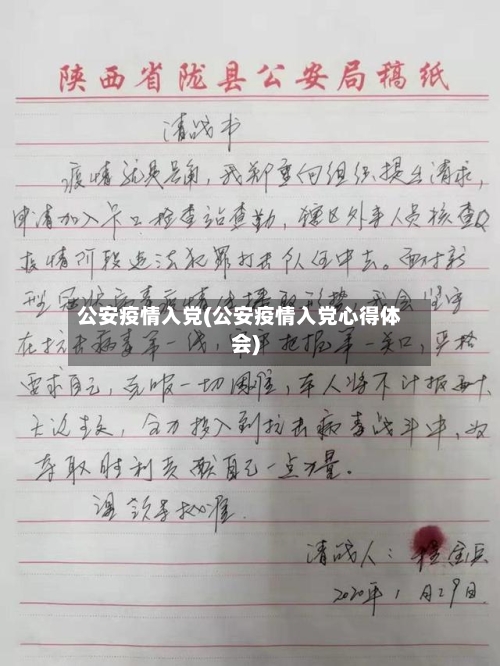 陕西省陇县公安局稿纸
请战书
疫情就是号角，我郑重向组织提出请求，
申请加入卡口检查站查勤，辖区外来人员核查及
疫情阶段违法犯罪打击队伍中去。面对新
型冠状病毒疫情
公安疫情入党(公安疫情入党心得体
会)
在抗击病毒第一线，把握第一关口，严格
要求自己，克服一切困难，本人将不计报酬
无论生死，全力投入到抗击病毒战斗中，为
夺取胜利贡献自己一点力量。
请领导批准
请战人：
2020年1月29日